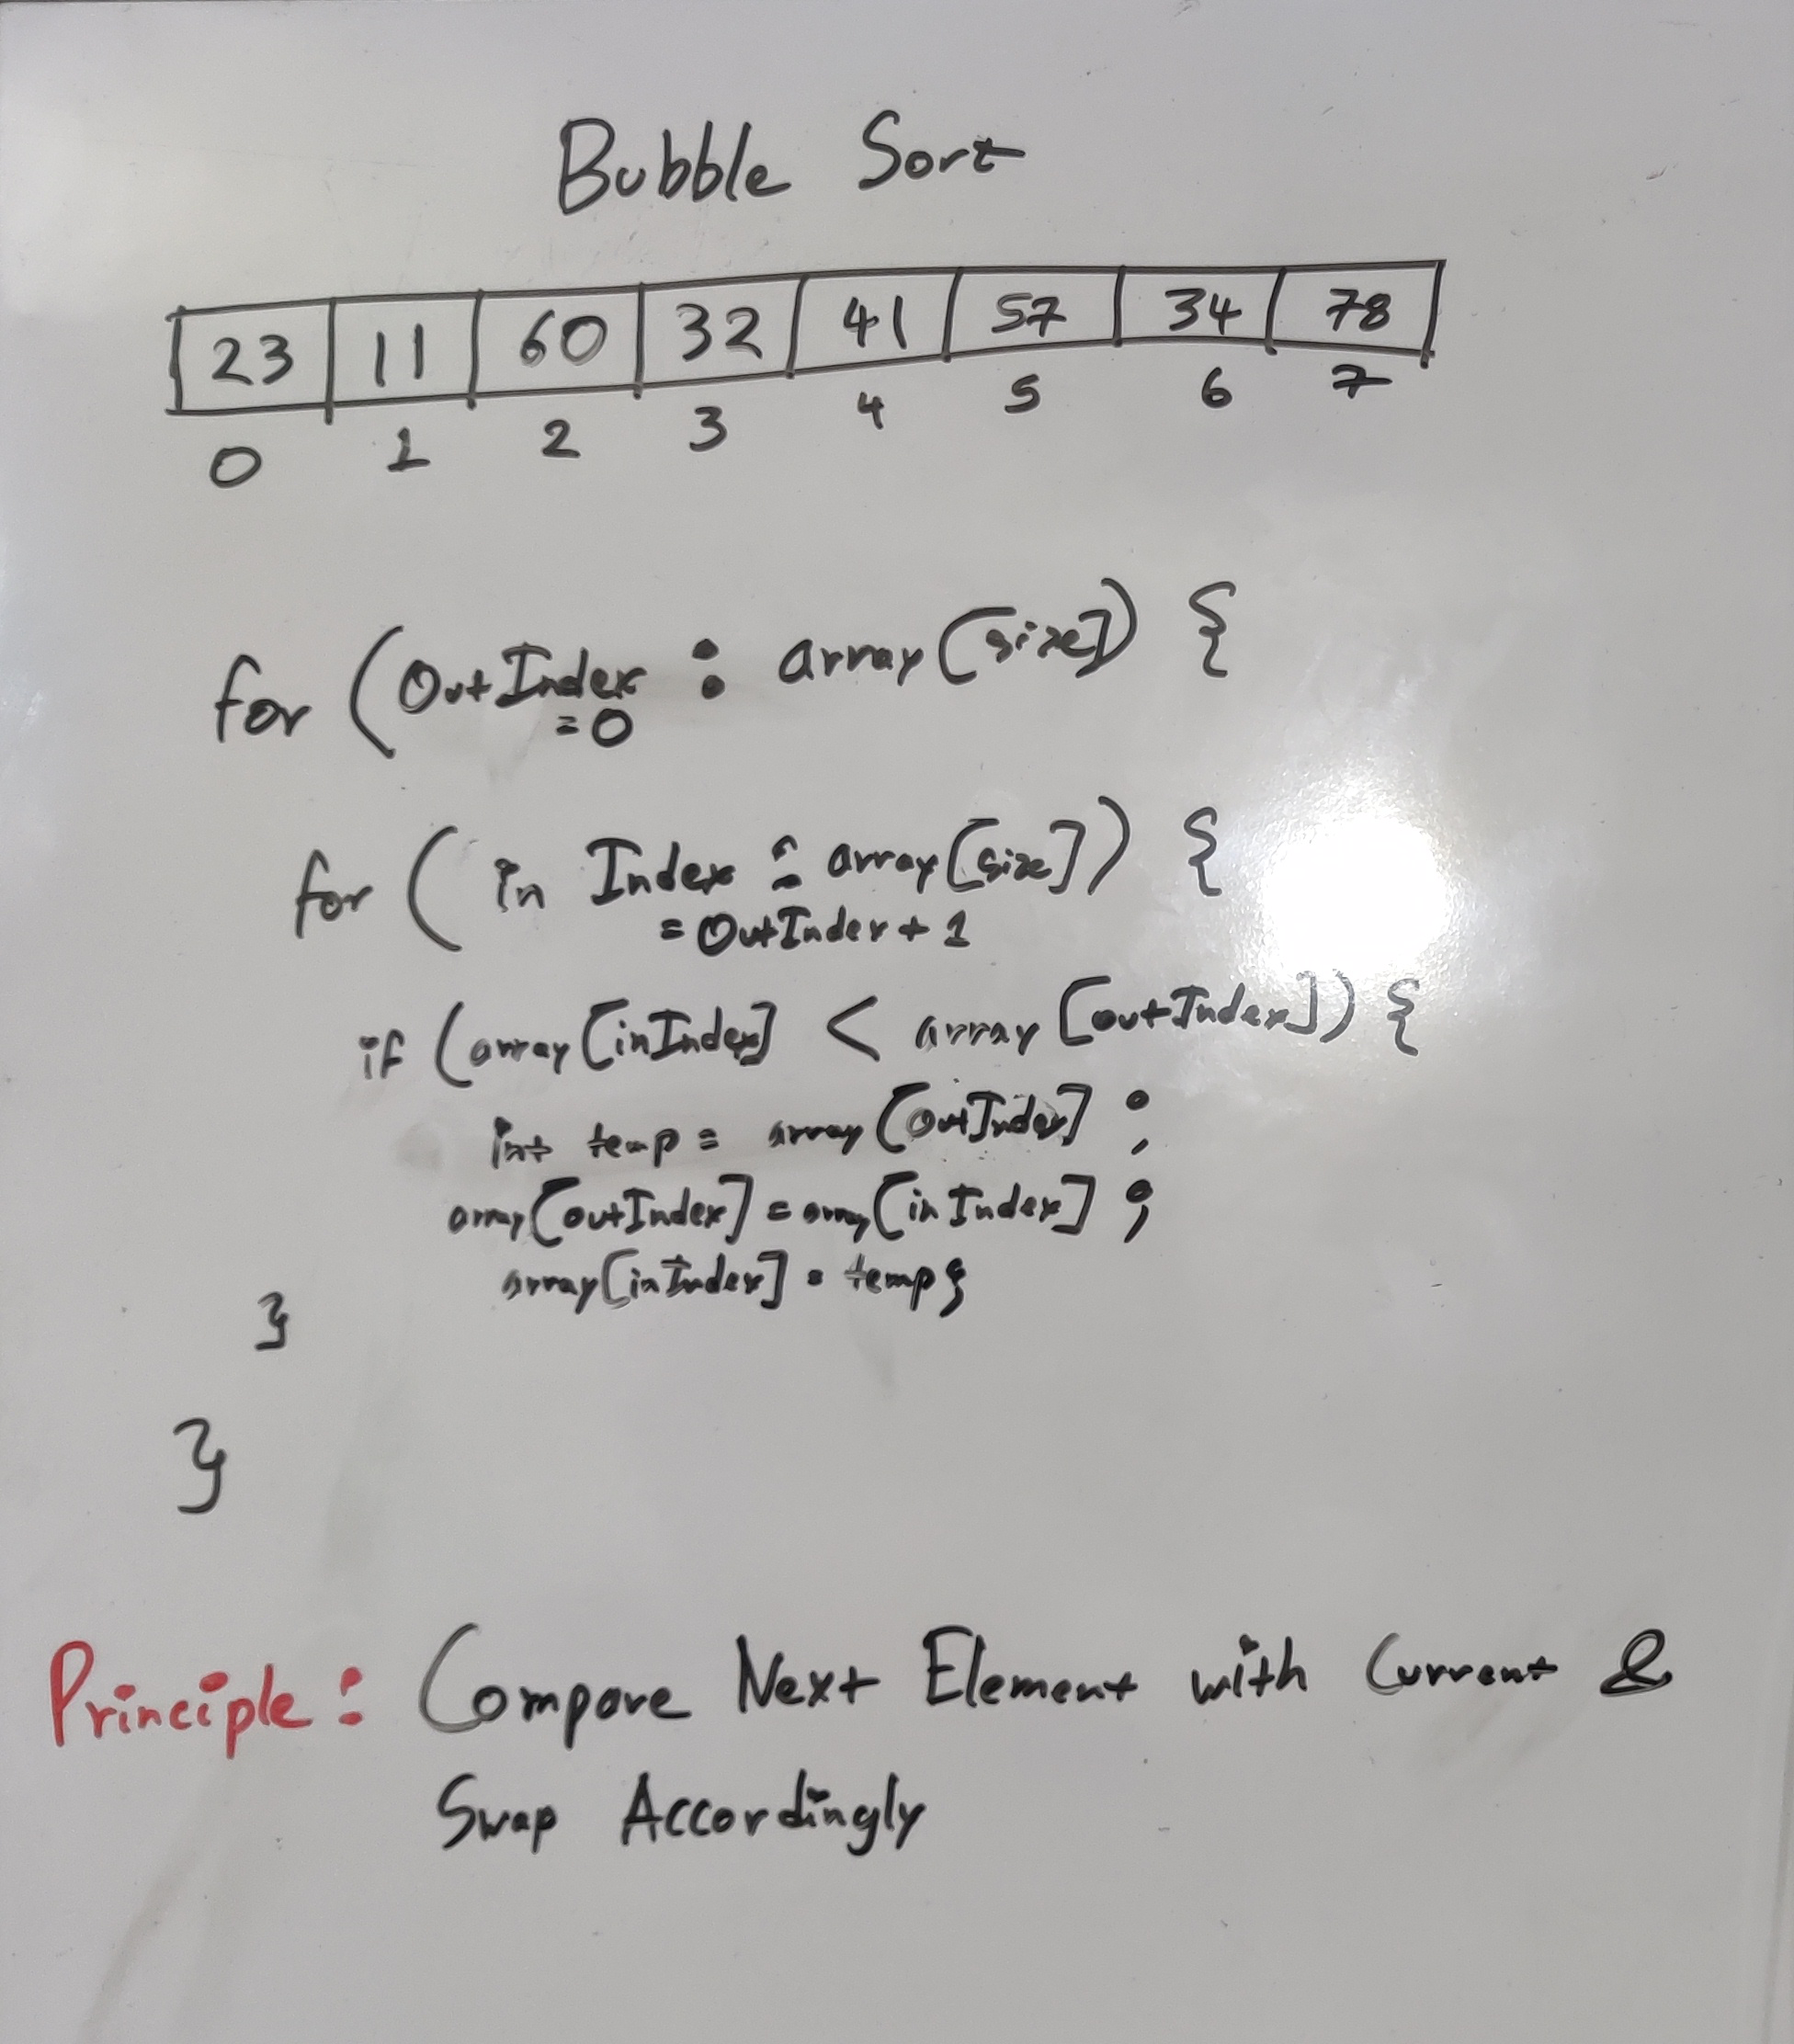 Bubble Sort
23 11 60 32 41 57 34 78
0 1 2 3 4 5 6 7
for (OutIndex : array[size]) {
=0
for ( in Index : array[size]) {
= OutIndex + 1
if (array[inIndex] < array[outIndex]) {
int temp = array[outIndex] ;
array[outIndex] = array[in Index] ;
array[inIndex] = temp}
}
}
Principle: Compare Next Element with Current &
Swap Accordingly